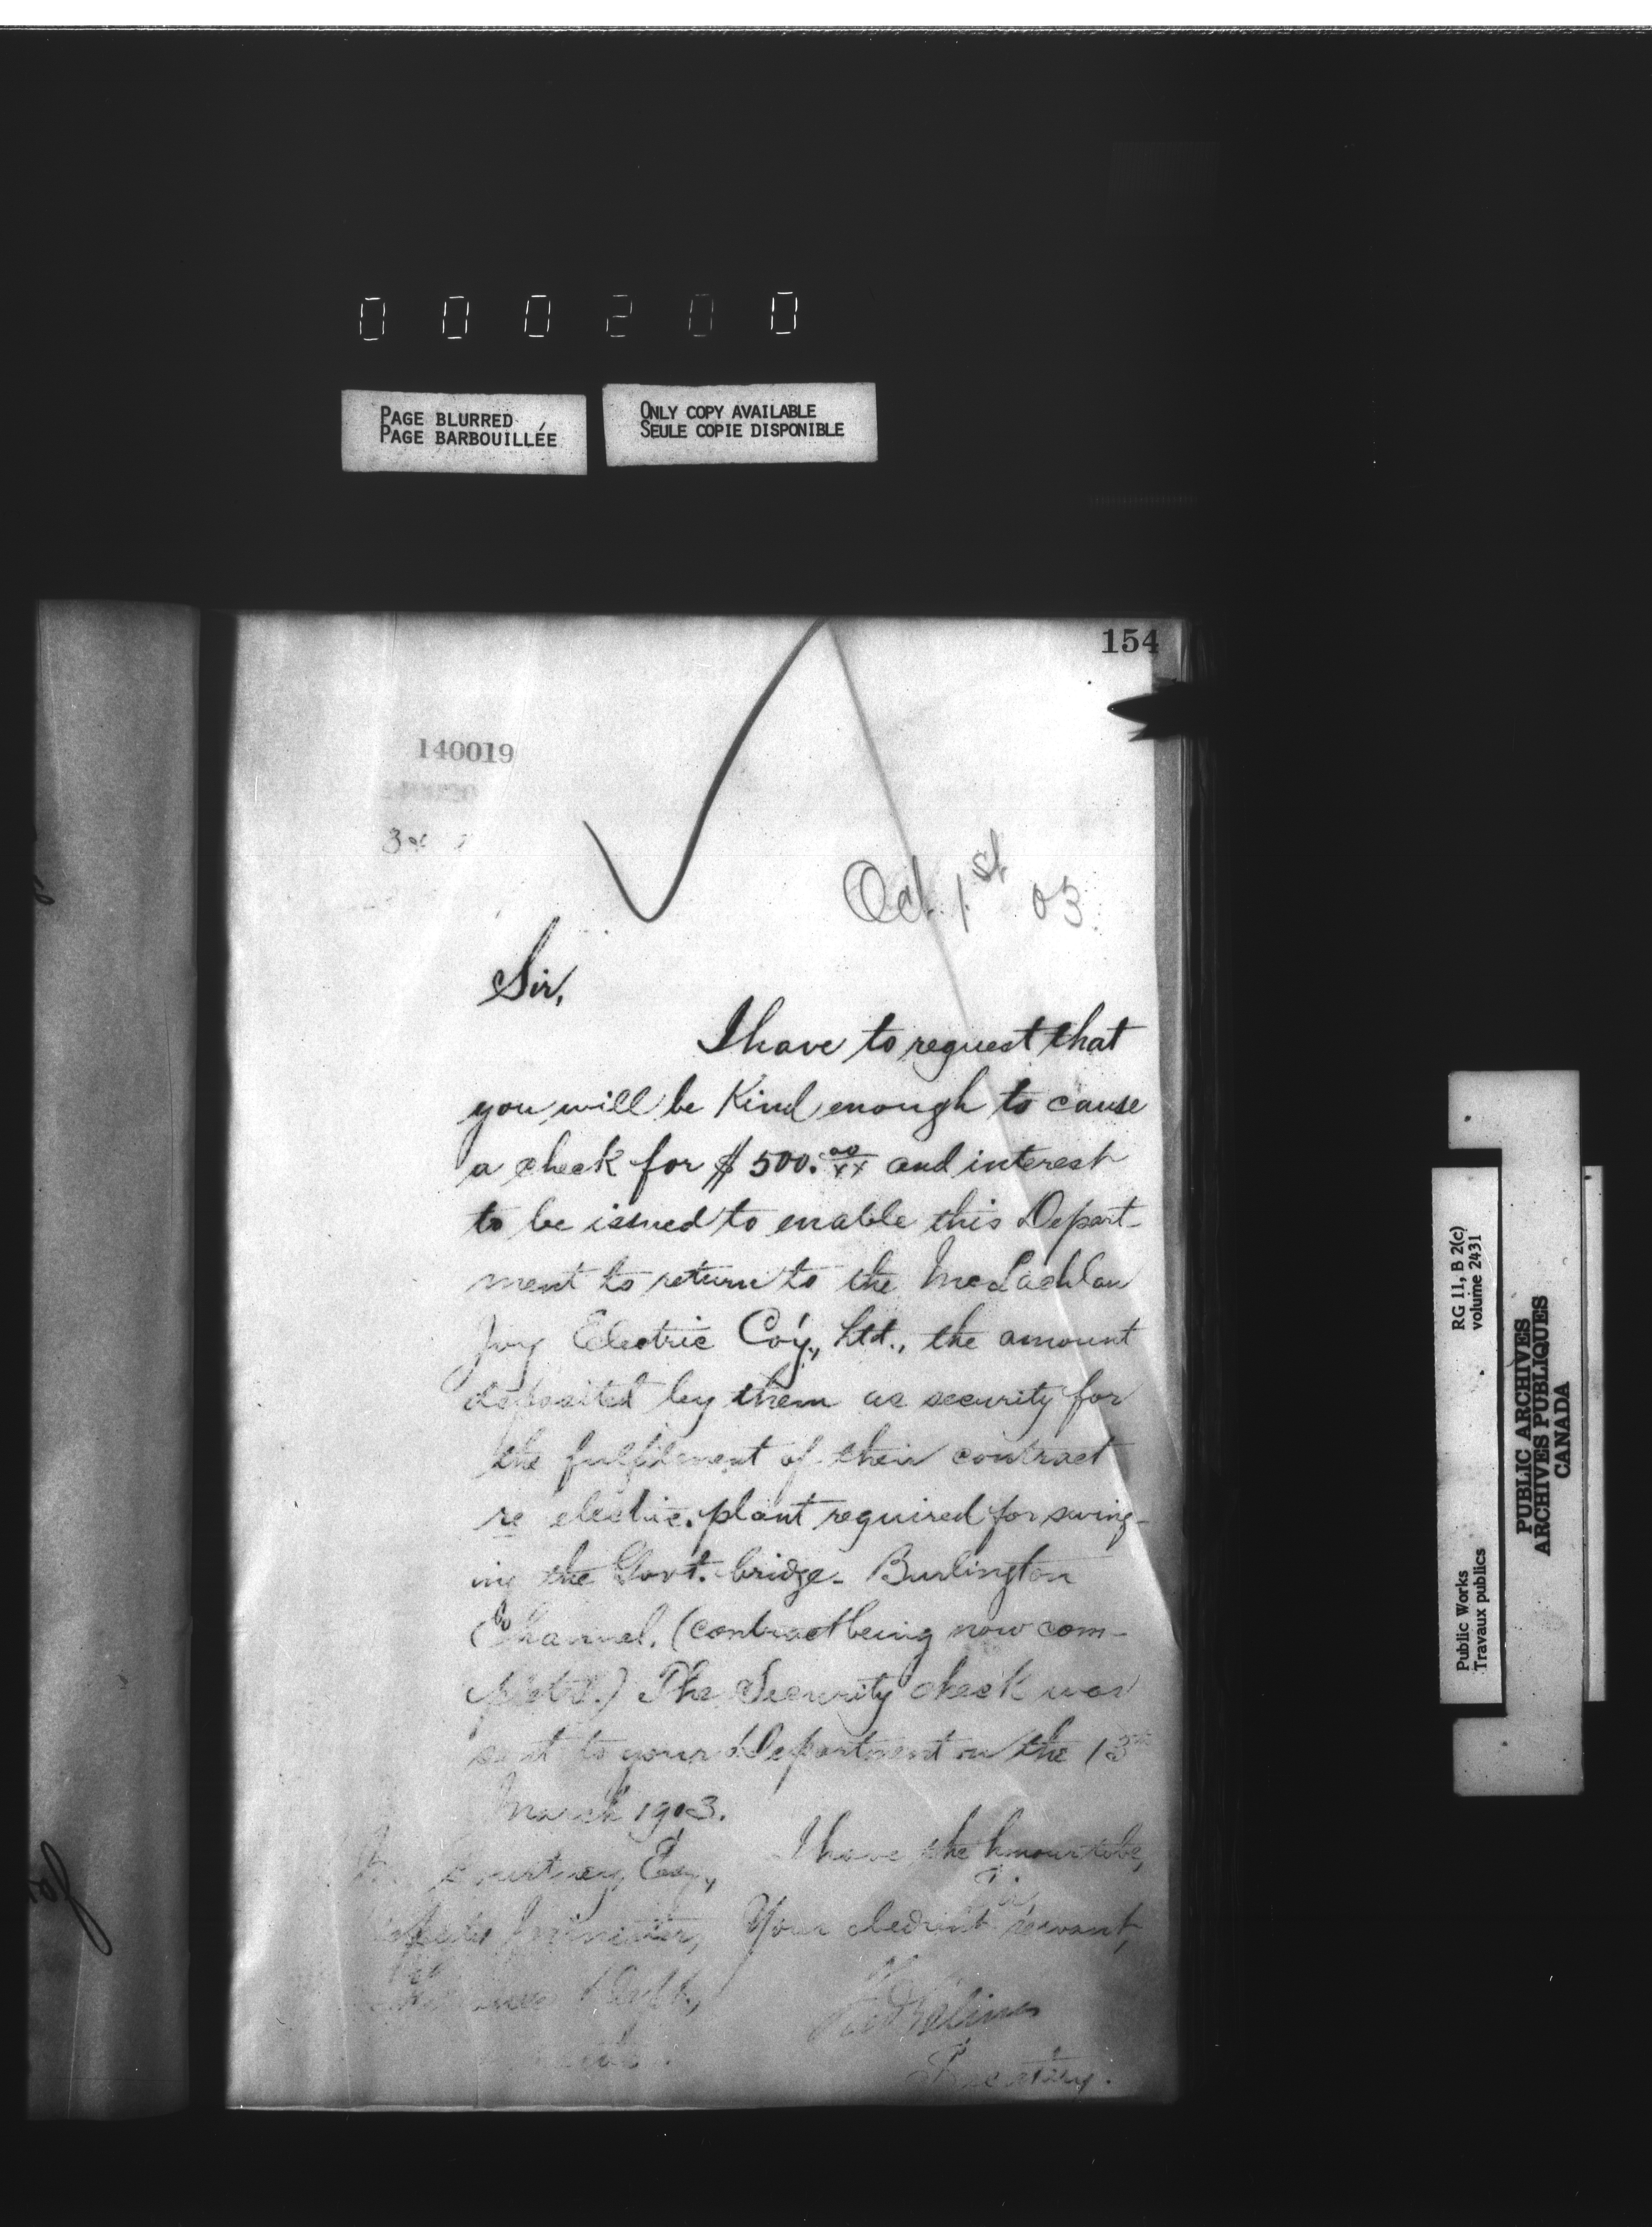 000200
PAGE BLURRED
PAGE BARBOUILLÉE
ONLY COPY AVAILABLE
SEULE COPIE DISPONIBLE
154
140019
Oct. 1st 03
Sir,
I have to request that
you will be Kind enough to cause
a check for $500.00/xx and interest
to be issued to enable this Depart-
ment to return to the McLachlan
Joy Electric Co'y., Ltd., the amount
deposited by them as security for
the fulfilment of their contract
re electric plant required for swing-
ing the Govt. bridge - Burlington
Channel. (contract being now com-
pleted.) The Security check was
sent to your Department on the 13th
March 1903.
I have the honour to be,
Sir,
Your obedient servant,
Secretary.
Courtney, Esq.,
Minister,
Dept.,
RG 11, B 2(c)
volume 2431
Public Works
Travaux publics
PUBLIC ARCHIVES
ARCHIVES PUBLIQUES
CANADA